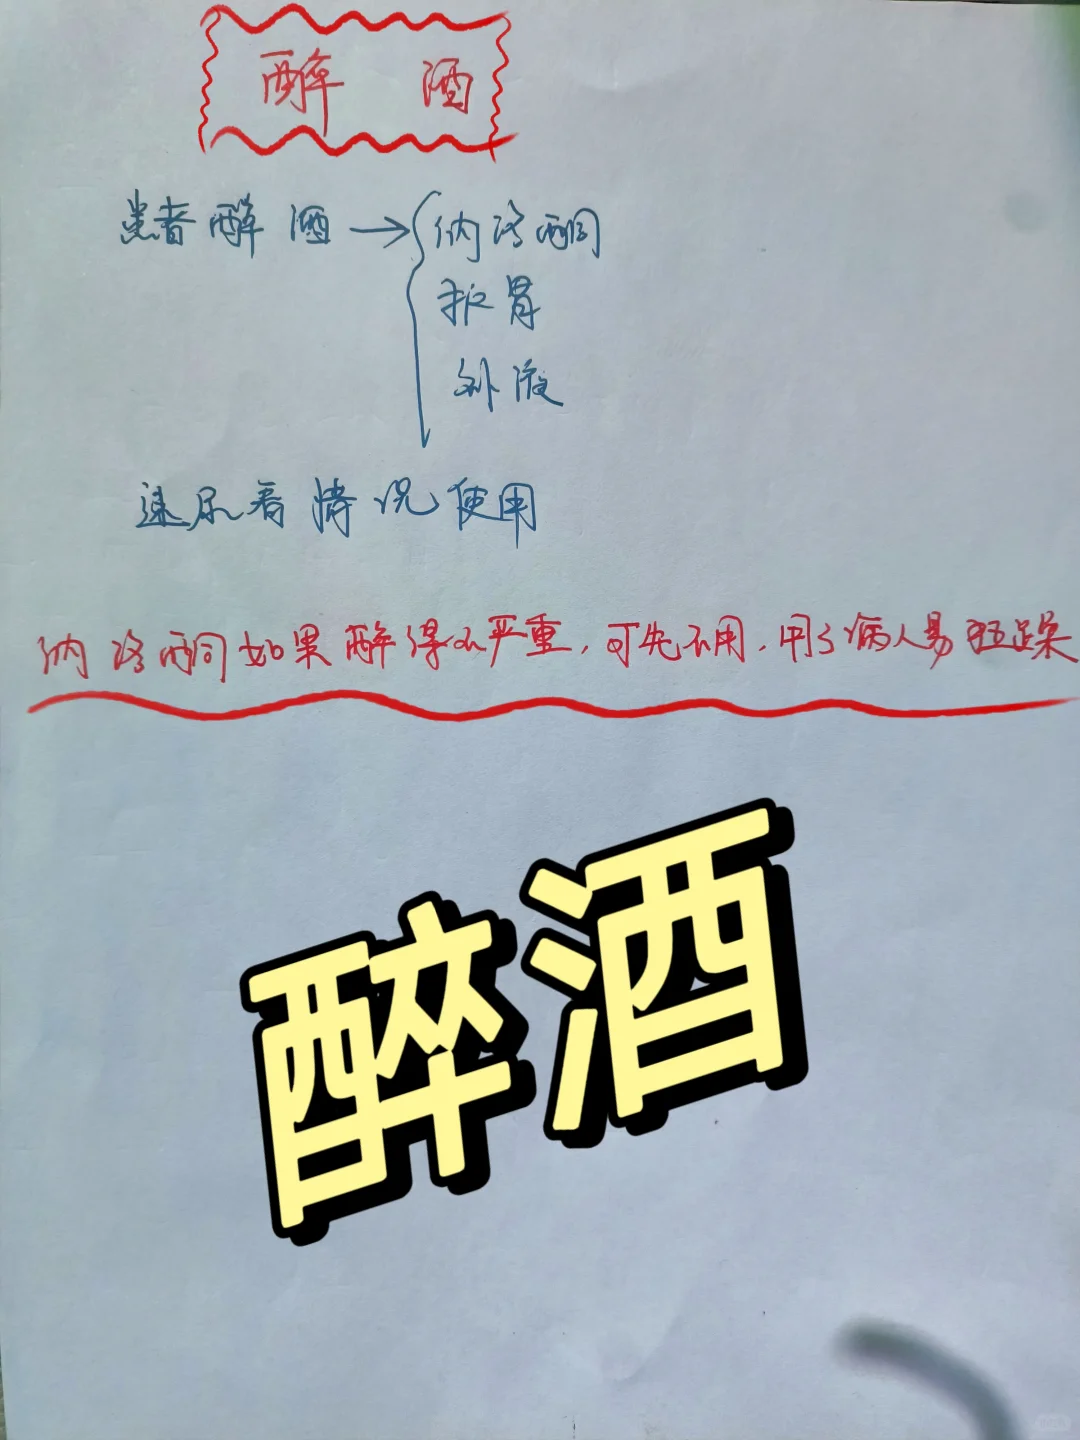 醉酒
患者醉酒→纳洛酮
护胃
补液
速尿看情况使用
纳洛酮如果醉得不严重,可先不用,用了病人易狂躁
醉酒